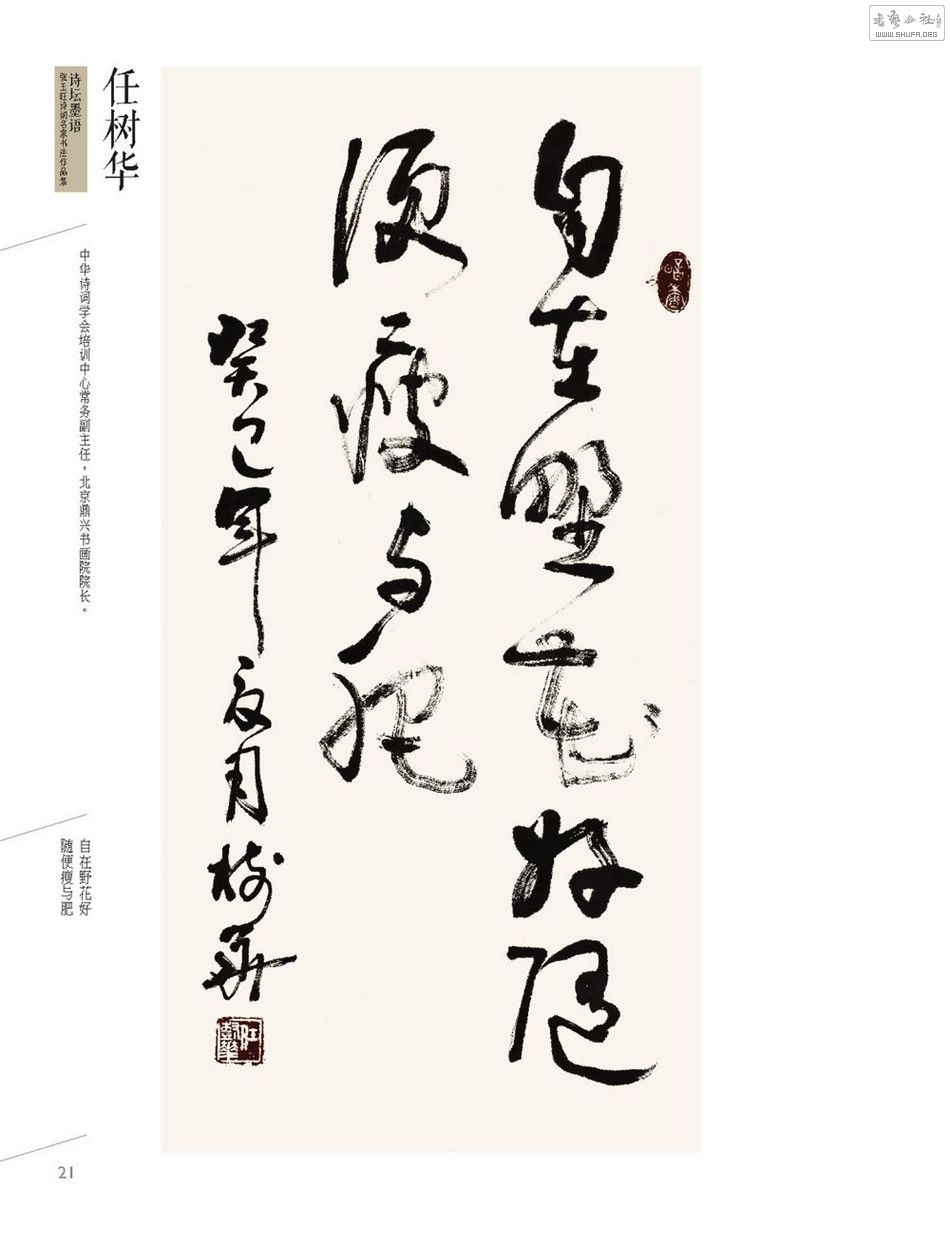 WWW.SHUFA.ORG
任树华
诗坛墨语
张玉旺诗词名家书法作品集
中华诗词学会培训中心常务副主任，北京鼎兴书画院院长。
自在野花好随
便瘦与肥
癸巳年夏月树华
自在野花好
随便瘦与肥
21